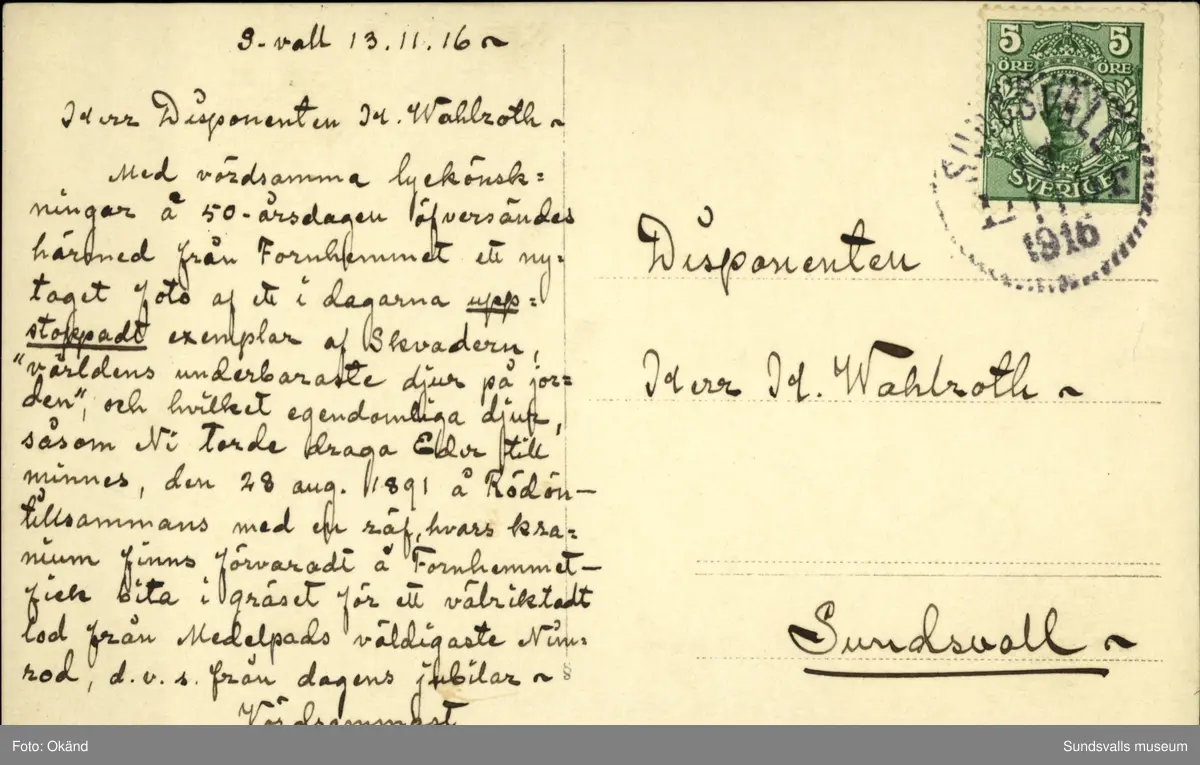 S-vall 13.11.16~
Herr Disponenten H. Wahlroth~
Med vördsamma lyckönsk=
ningar å 50-årsdagen öfversändes
härmed från Fornhemmet ett ny=
taget foto af ett i dagarna upp=
stoppadt exemplar af Skvadern,
"världens underbaraste djur på jor=
den", och hvilket egendomliga djur,
såsom Ni torde draga Eder till
minnes, den 28 aug. 1891 å Rödön—
tillsammans med en räf, hvars kra=
nium finns förvaradt å Fornhemmet—
fick bita i gräset för ett välriktadt
lod från Medelpads väldigaste Nim=
rod, d.v.s. från dagens jubilar~
Vördsammast
5 5
ÖRE ÖRE
SVERIGE
SUNDSVALL
1916
Disponenten
Herr H. Wahlroth~
Sundsvall~
Foto: Okänd
Sundsvalls museum